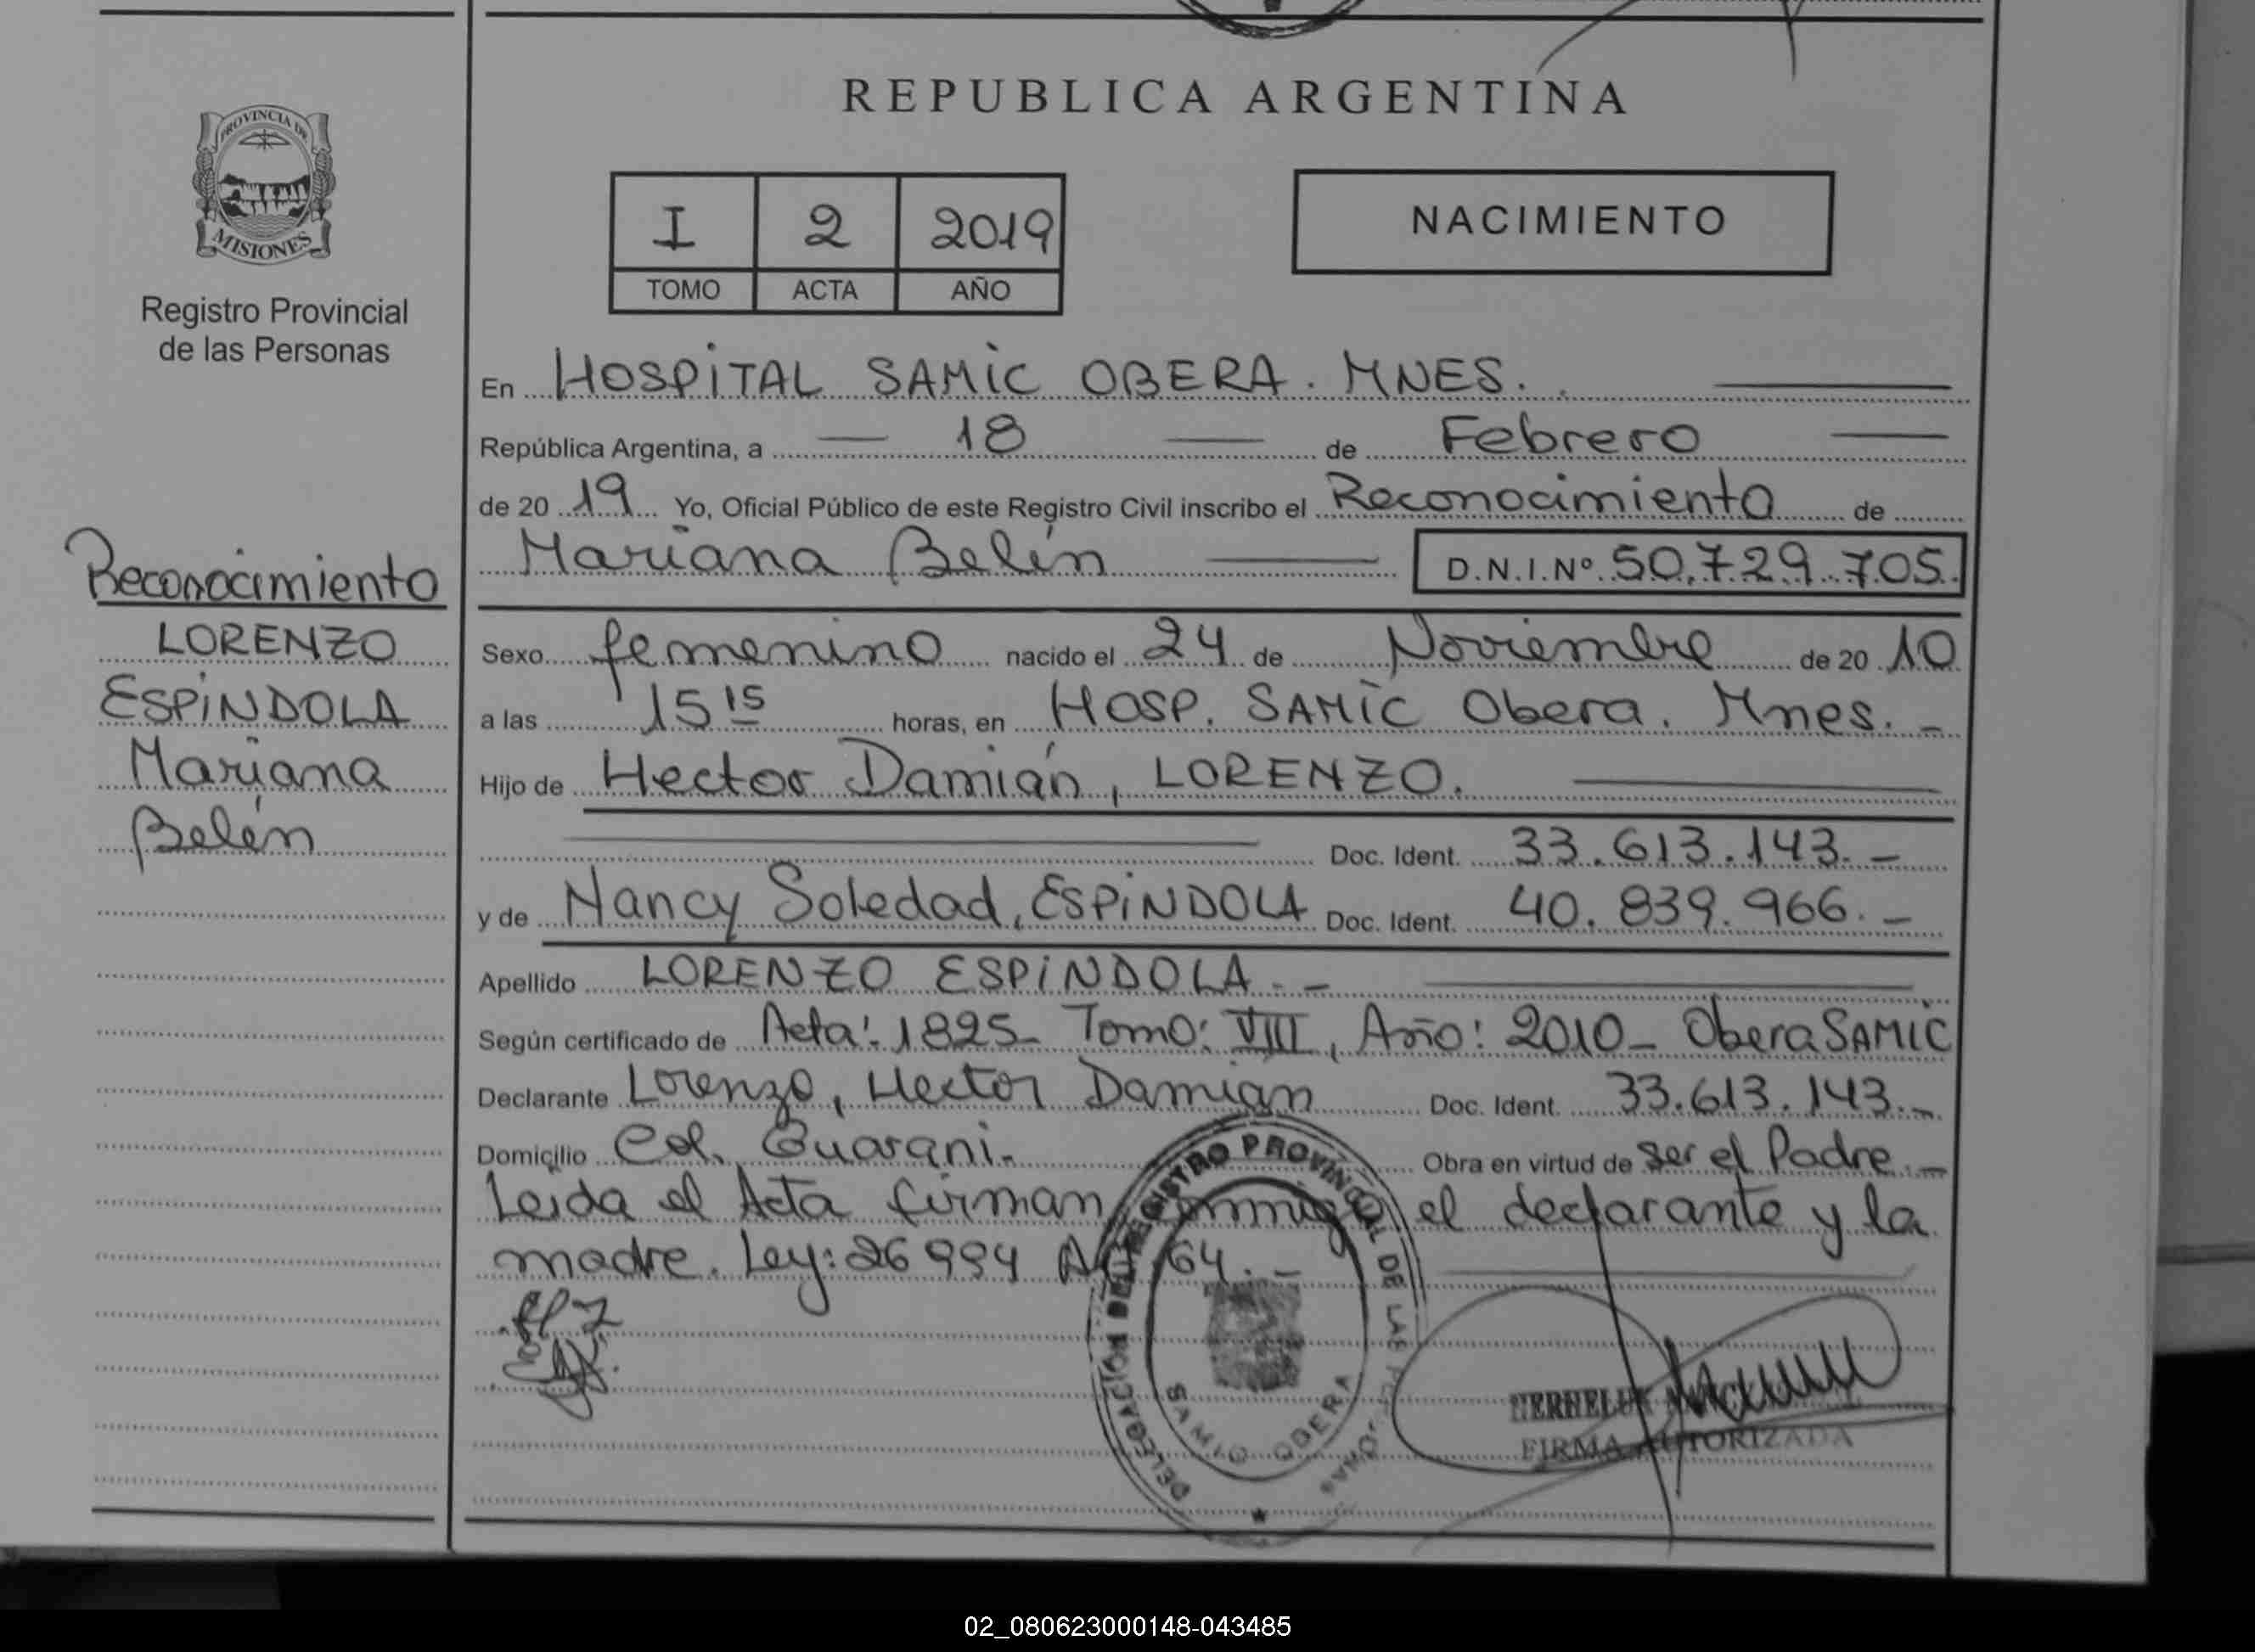 REPUBLICA ARGENTINA
PROVINCIA DE
MISIONES
Registro Provincial
de las Personas
I 2 2019
TOMO ACTA AÑO
NACIMIENTO
En HOSPITAL SAMIC OBERA. MNES.
República Argentina, a 18 de Febrero
de 20 19 Yo, Oficial Público de este Registro Civil inscribo el Reconocimiento de
Mariana Belén D.N.I.Nº 50.729.705.
Reconocimiento
LORENZO
ESPINDOLA
Mariana
Belén
Sexo femenino nacido el 24 de Noviembre de 20 10
a las 15 15 horas, en HOSP. SAMIC Obera. Mnes. -
Hijo de Hector Damián, LORENZO.
Doc. Ident. 33.613.143. -
y de Nancy Soledad, ESPINDOLA Doc. Ident. 40.839.966. -
Apellido LORENZO ESPINDOLA. -
Según certificado de Acta: 1825- Tomo: VIII, Año: 2010- Obera SAMIC
Declarante Lorenzo, Hector Damian Doc. Ident. 33.613.143. -
Domicilio Col. Guarani. Obra en virtud de ser el Padre. -
Leida el Acta firman conmigo el declarante y la
madre. Ley: 26994 Art 64. -
DELEGACIÓN DEL REGISTRO PROVINCIAL DE LAS PERSONAS
SAMIC OBERA
FIRMA AUTORIZADA
02_080623000148-043485